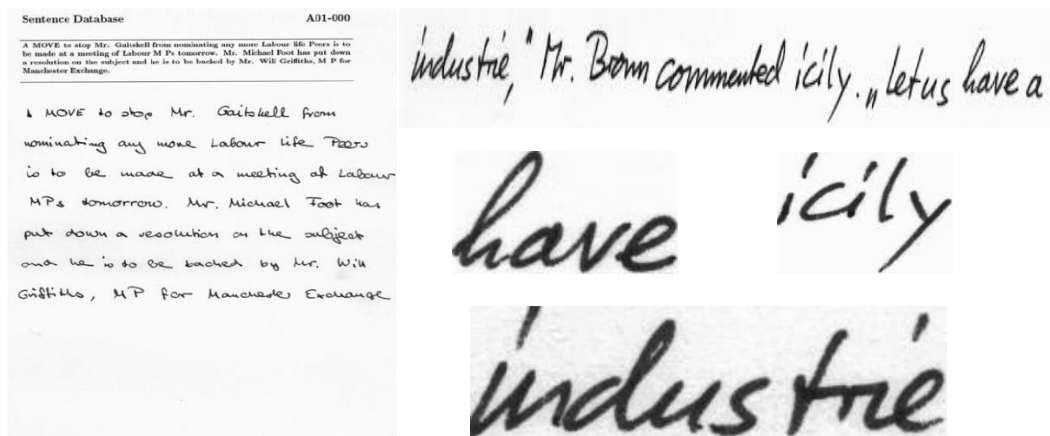 Sentence Database A01-000
A MOVE to stop Mr. Gaitskell from nominating any more Labour life Peers is to
be made at a meeting of Labour M Ps tomorrow. Mr. Michael Foot has put down
a resolution on the subject and he is to be backed by Mr. Will Griffiths, M P for
Manchester Exchange.
A MOVE to stop Mr. Gaitskell from
nominating any more Labour life Peers
is to be made at a meeting of Labour
MPs tomorrow. Mr. Michael Foot has
put down a resolution on the subject
and he is to be backed by Mr. Will
Griffiths, MP for Manchester Exchange
industrie," Mr. Brown commented icily. „Let us have a
have
icily
industrie